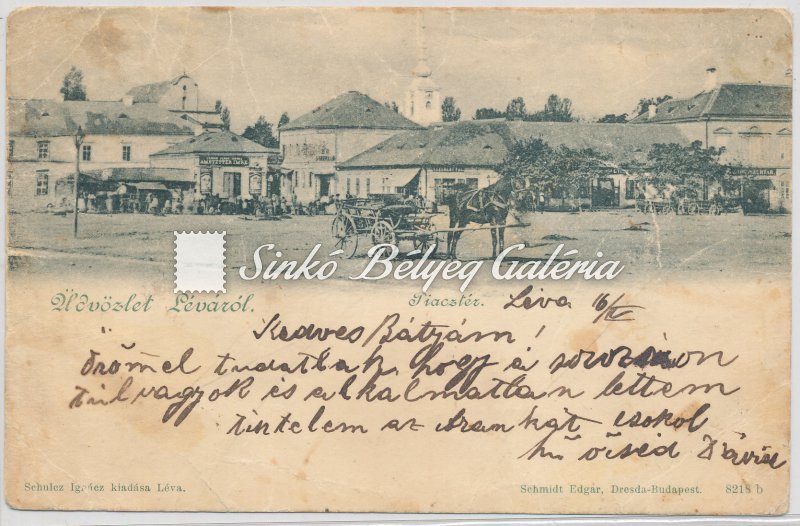 AMSTETTER IMRE
Sinkó Bélyeg Galéria
Üdvözlet Léváról.
Piacztér.
Léva 16/IV
Kedves Bátyám!
örömel tudatlak, hogy a sorozáson
túl vagyok és alkalmatlan lettem
tistelem az Arankát csokol
hű őcséd Dávid
Schulcz Ignácz kiadása Léva.
Schmidt Edgár, Dresda-Budapest. 8218 b